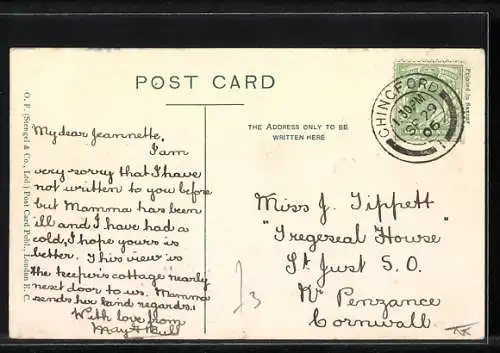 POST CARD
THE ADDRESS ONLY TO BE
WRITTEN HERE
Printed in Saxony
CHINGFORD
SP 29
06
O. F. (Stengel & Co., Ltd.) Post Card Publ., London E. C.
My dear Jeannette.
I am
very sorry that I have
not written to you before
but Mamma has been
ill and I have had a
cold, I hope yours is
better. This view is
the keeper's cottage nearly
next door to us. Mamma
sends her kind regards.
With love from
May
Miss J. Tippett
"Tregeseal House"
St Just S. O.
Nr Penzance
Cornwall